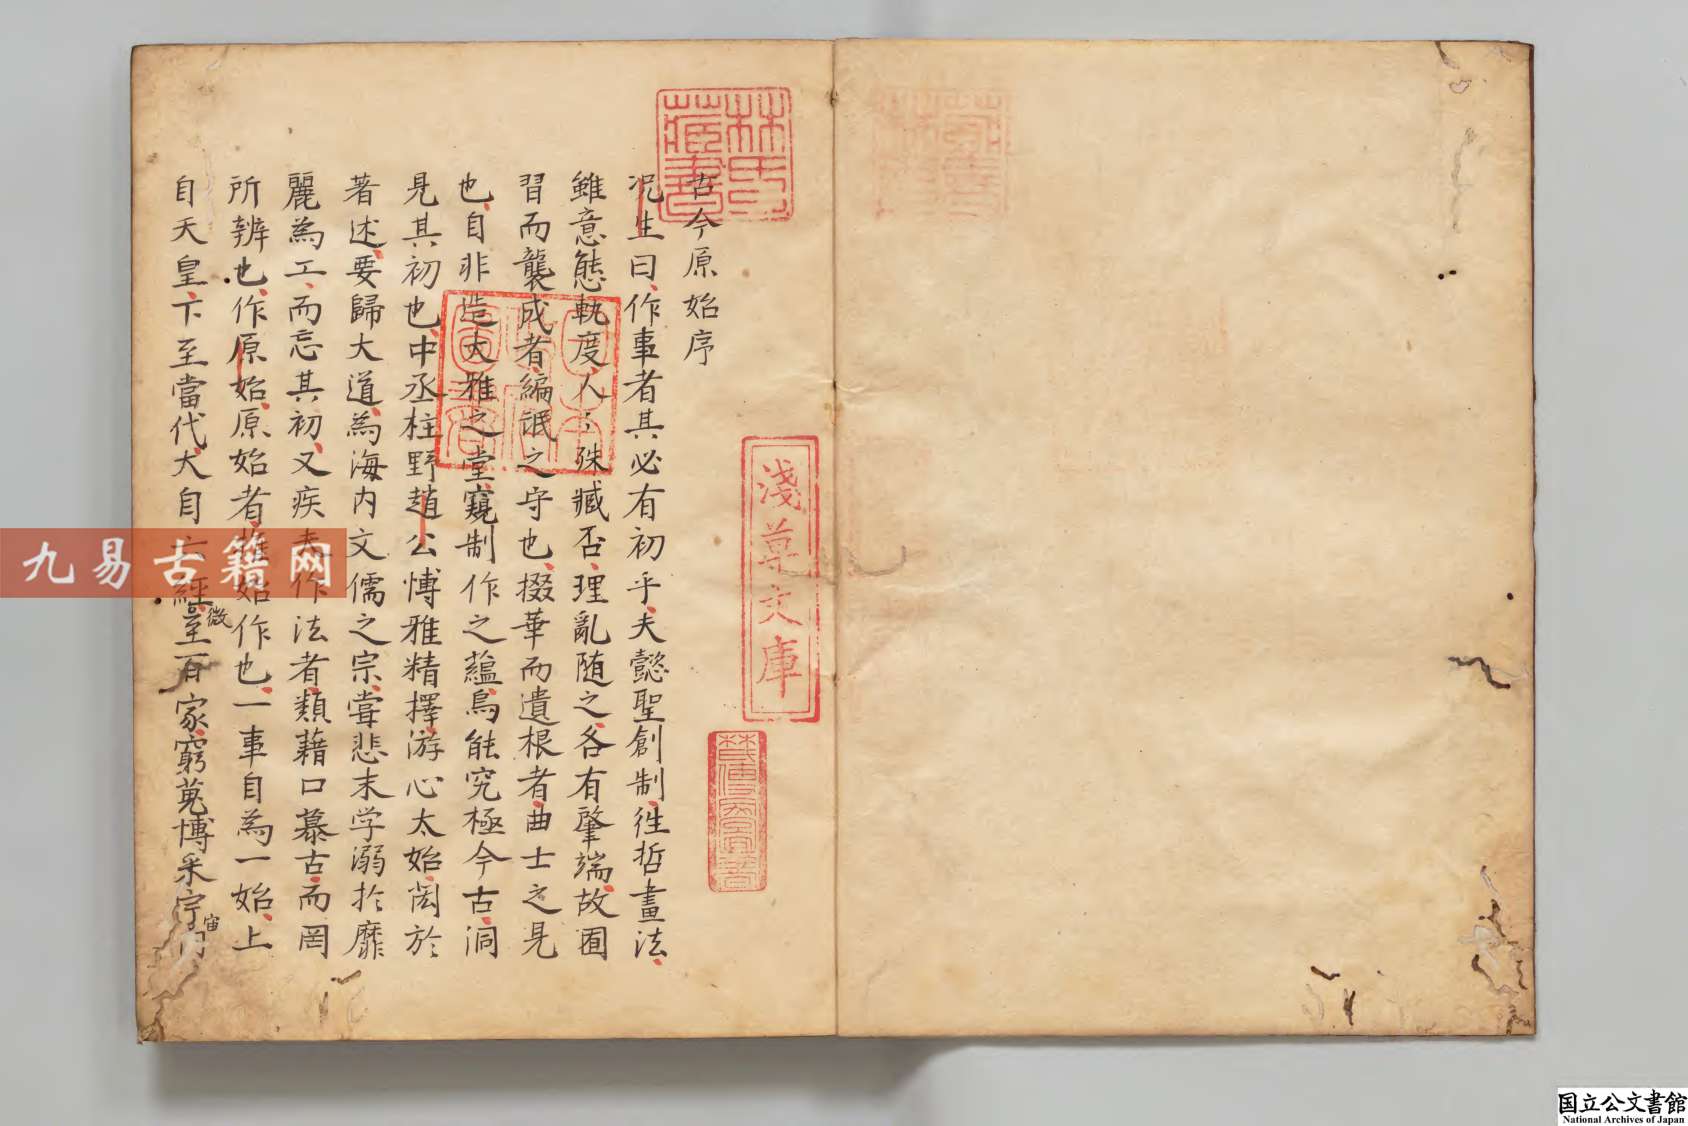 古今原始序
況生曰作事者其必有初乎夫懿聖創制徃哲畫法
雖意態軌度人々殊臧否理亂随之各有肇端故囿
習而襲成者編氓之守也掇華而遺根者曲士之見
也自非造大雅之堂窺制作之蘊烏能究極今古洞
見其初也中丞柱野趙公愽雅精擇游心太始閎於
著述要歸大道為海内文儒之宗甞悲末学溺扵靡
麗為工而忘其初又疾夫作法者類藉口慕古而罔
所辨也作原始原始者推始作也一事自為一始上
自天皇下至當代大自六經微至百家窮蒐博采宇宙内
林氏藏書
日本政府圖書
淺草文庫
九易古籍网
国立公文書館
National Archives of Japan